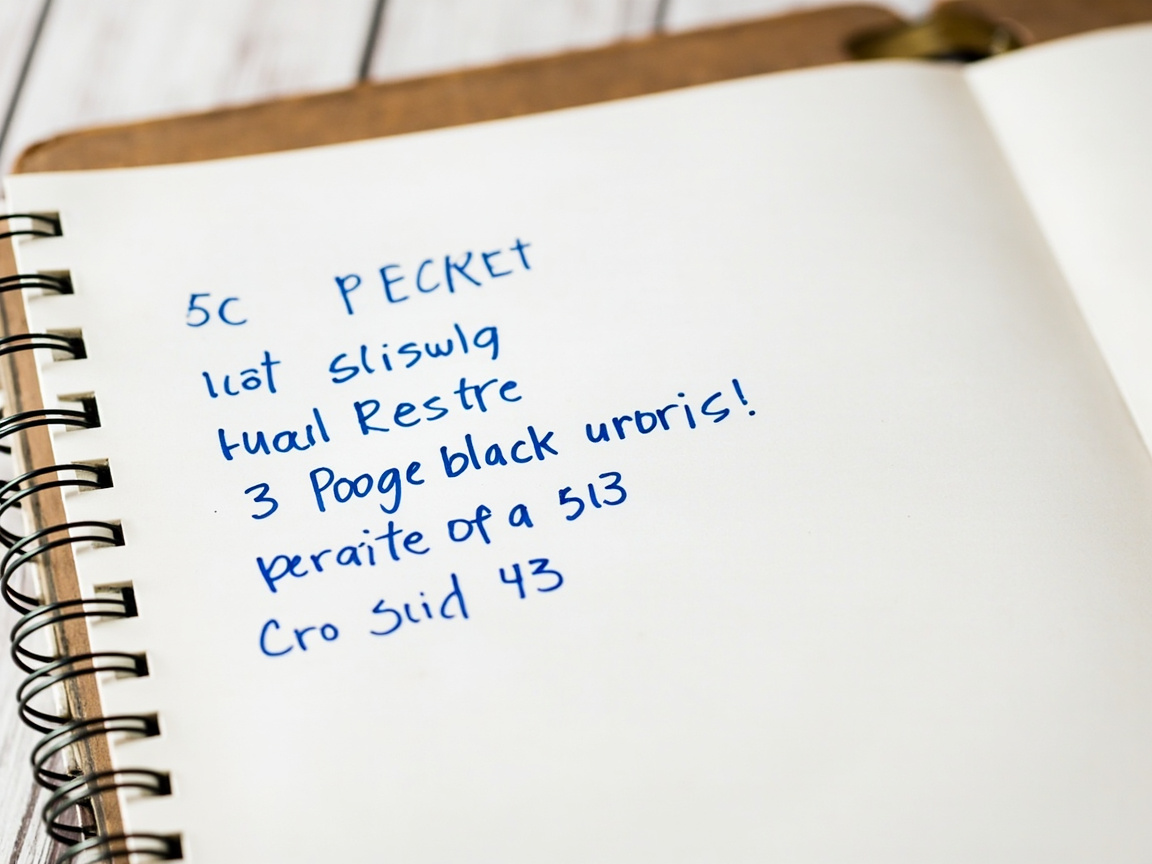 5C PECKET
sliswlg
Restre
3 Pooge black uroris!
peraite of a 513
Cro Slid 43